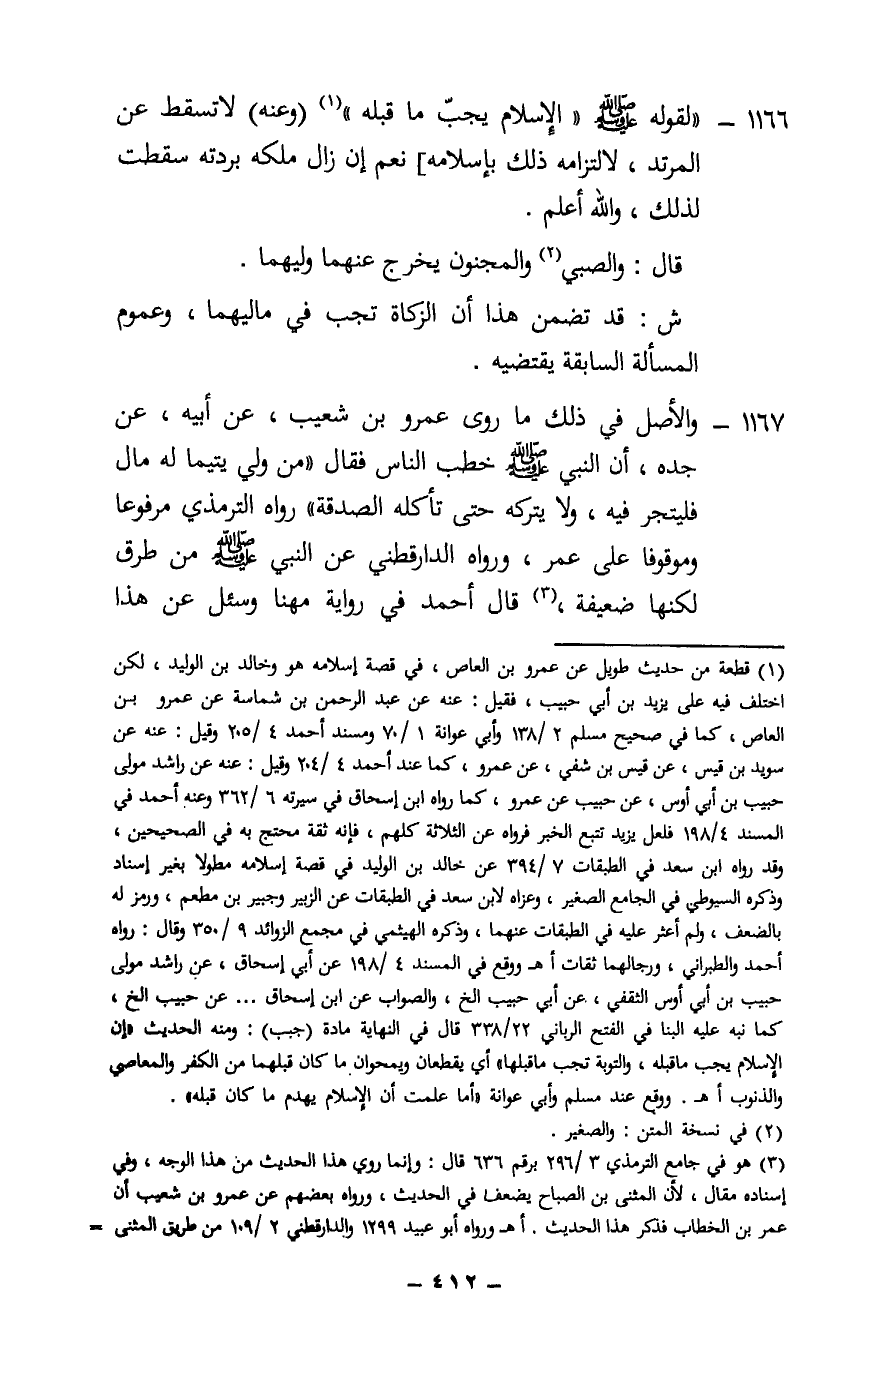 ١١٦٦ – «لقوله ﷺ « الإسلام يجبّ ما قبله »(١) (وعنه) لاتسقط عن
المرتد ، لالتزامه ذلك بإسلامه] نعم إن زال ملكه بردته سقطت
لذلك ، والله أعلم .
قال : والصبي(٢) والمجنون يخرج عنهما وليهما .
ش : قد تضمن هذا أن الزكاة تجب في ماليهما ، وعموم
المسألة السابقة يقتضيه .
١١٦٧ – والأصل في ذلك ما روى عمرو بن شعيب ، عن أبيه ، عن
جده ، أن النبي ﷺ خطب الناس فقال «من ولي يتيما له مال
فليتجر فيه ، ولا يتركه حتى تأكله الصدقة» رواه الترمذي مرفوعا
وموقوفا على عمر ، ورواه الدارقطني عن النبي ﷺ من طرق
لكنها ضعيفة ،(٣) قال أحمد في رواية مهنا وسئل عن هذا
(١) قطعة من حديث طويل عن عمرو بن العاص ، في قصة إسلامه هو وخالد بن الوليد ، لكن
اختلف فيه على يزيد بن أبي حبيب ، فقيل : عنه عن عبد الرحمن بن شماسة عن عمرو بن
العاص ، كما في صحيح مسلم ٢ /١٣٨ وأبي عوانة ١ /٧٠ ومسند أحمد ٤ /٢٠٥ وقيل : عنه عن
سويد بن قيس ، عن قيس بن شفي ، عن عمرو ، كما عند أحمد ٤ /٢٠٤ وقيل : عنه عن راشد مولى
حبيب بن أبي أوس ، عن حبيب عن عمرو ، كما رواه ابن إسحاق في سيرته ٦ /٣٦٢ وعنه أحمد في
المسند ١٩٨/٤ فلعل يزيد تتبع الخبر فرواه عن الثلاثة كلهم ، فإنه ثقة محتج به في الصحيحين ،
وقد رواه ابن سعد في الطبقات ٧ /٣٩٤ عن خالد بن الوليد في قصة إسلامه مطولا بغير إسناد
وذكره السيوطي في الجامع الصغير ، وعزاه لابن سعد في الطبقات عن الزبير وجبير بن مطعم ، ورمز له
بالضعف ، ولم أعثر عليه في الطبقات عنهما ، وذكره الهيثمي في مجمع الزوائد ٩ /٣٥٠ وقال : رواه
أحمد والطبراني ، ورجالهما ثقات أ هـ ووقع في المسند ٤ /١٩٨ عن أبي إسحاق ، عن راشد مولى
حبيب بن أبي أوس الثقفي ، عن أبي حبيب الخ ، والصواب عن ابن إسحاق ... عن حبيب الخ ،
كما نبه عليه البنا في الفتح الرباني ٣٣٨/٢٢ قال في النهاية مادة (جبب) : ومنه الحديث «إن
الإسلام يجب ماقبله ، والتوبة تجب ماقبلها» أي يقطعان ويمحوان ما كان قبلهما من الكفر والمعاصي
والذنوب أ هـ . ووقع عند مسلم وأبي عوانة «أما علمت أن الإسلام يهدم ما كان قبله» .
(٢) في نسخة المتن : والصغير .
(٣) هو في جامع الترمذي ٣ /٢٩٦ برقم ٦٣٦ قال : وإنما روي هذا الحديث من هذا الوجه ، وفي
إسناده مقال ، لأن المثنى بن الصباح يضعف في الحديث ، ورواه بعضهم عن عمرو بن شعيب أن
عمر بن الخطاب فذكر هذا الحديث . أ هـ ورواه أبو عبيد ١٢٩٩ والدارقطني ٢ /١٠٩ من طريق المثنى =
– ٤١٢ –